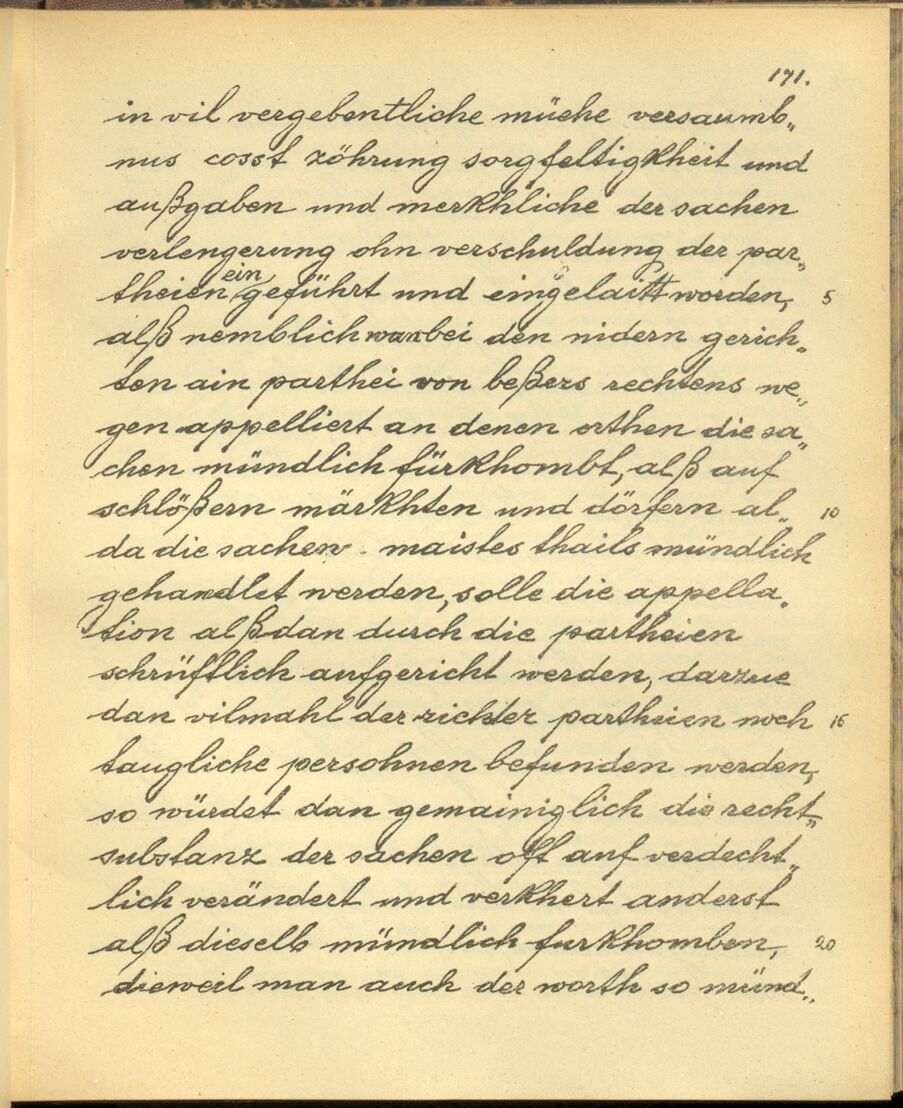 171.
in vil vergebentliche müehe versaumb„
nus cosst zöhrung sorgfeltigkheit und
außgaben und merkhliche der sachen
verlengerung ohn verschuldung der par„
ein
theien geführt und eingelaitt worden, 5
alß nemblich wan bei den nidern gerich„
ten ain parthei von beßers rechtens we„
gen appelliert an denen orthen die sa„
chen mündlich fürkhombt, alß auf
schlößern märkhten und dörfern al„ 10
da die sachen maistes thails mündlich
gehandlet werden, solle die appella„
tion alßdan durch die partheien
schrüfftlich aufgericht werden, darzue
dan vilmahl der richter partheien noch 15
taugliche persohnen befunden werden,
so würdet dan gemainiglich die recht„
substanz der sachen oft auf verdecht„
lich verändert und verkhert anderst
alß dieselb mündlich furkhomben, 20
dieweil man auch der worth so münd„